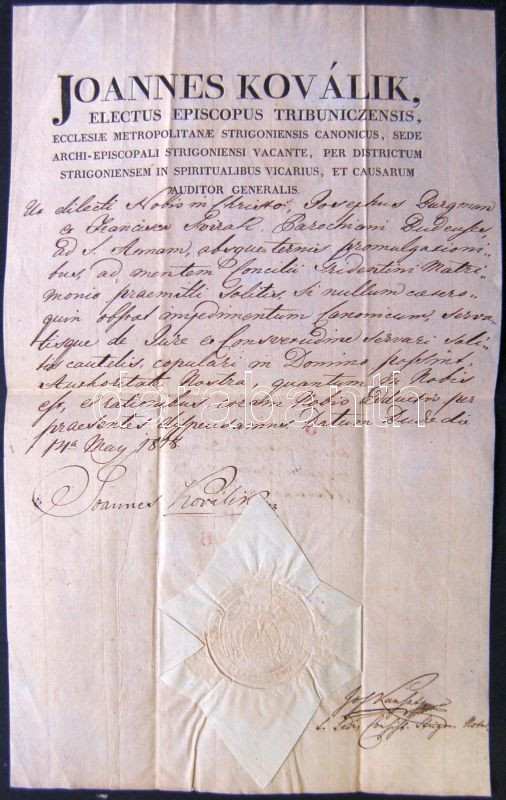 JOANNES KOVÁLIK,
ELECTUS EPISCOPUS TRIBUNICZENSIS,
ECCLESIÆ METROPOLITANÆ STRIGONIENSIS CANONICUS, SEDE
ARCHI-EPISCOPALI STRIGONIENSI VACANTE, PER DISTRICTUM
STRIGONIENSEM IN SPIRITUALIBUS VICARIUS, ET CAUSARUM
AUDITOR GENERALIS.
Ut dilecti Nobis in Christo, Josephus
et Francisca Parochiani Budenses
ad S. Annam, absque ternis promulgationi-
bus, ad mentem Concilii Tridentini Matri-
monio praemitti solitis, si nullum caetero-
quin obstet impedimentum Canonicum, serva-
tisque de Jure et Consvetudine servari soli-
tis cautelis, copulari in Domino possint
Authoritate Nostra, quantum in Nobis
est, et rationibus coram Nobis Eductis per
praesentes dispensamus Datum Budae die
14a May
Joannes Kovalik
darabanth